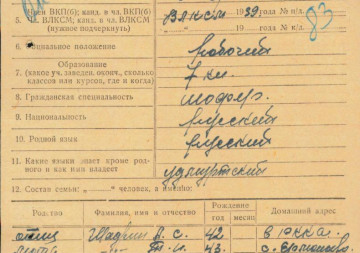 Член ВКП(б), канд. в чл. ВКП(б)
5. Чл. ВЛКСМ, канд. в чл. ВЛКСМ ВЛКСМ 1939 года № п/д.
(нужное подчеркнуть) 193 года № п/д. 83
6. Социальное положение рабочий
Образование
7. (какое уч. заведен. оконч., сколько 7 кл.
классов или курсов, где и когда)
8. Гражданская специальность шофер.
9. Национальность русский
10. Родной язык русский
11. Какие языки знает кроме род-
ного и как ими владеет удмуртский
12. Состав семьи: „ “ человека, а именно:
Род.тво Фамилия, имя и отчество Рождение Домашний адрес
год месяц
отец Шадрин А. С. 42 в РККА.
Т. И. 43